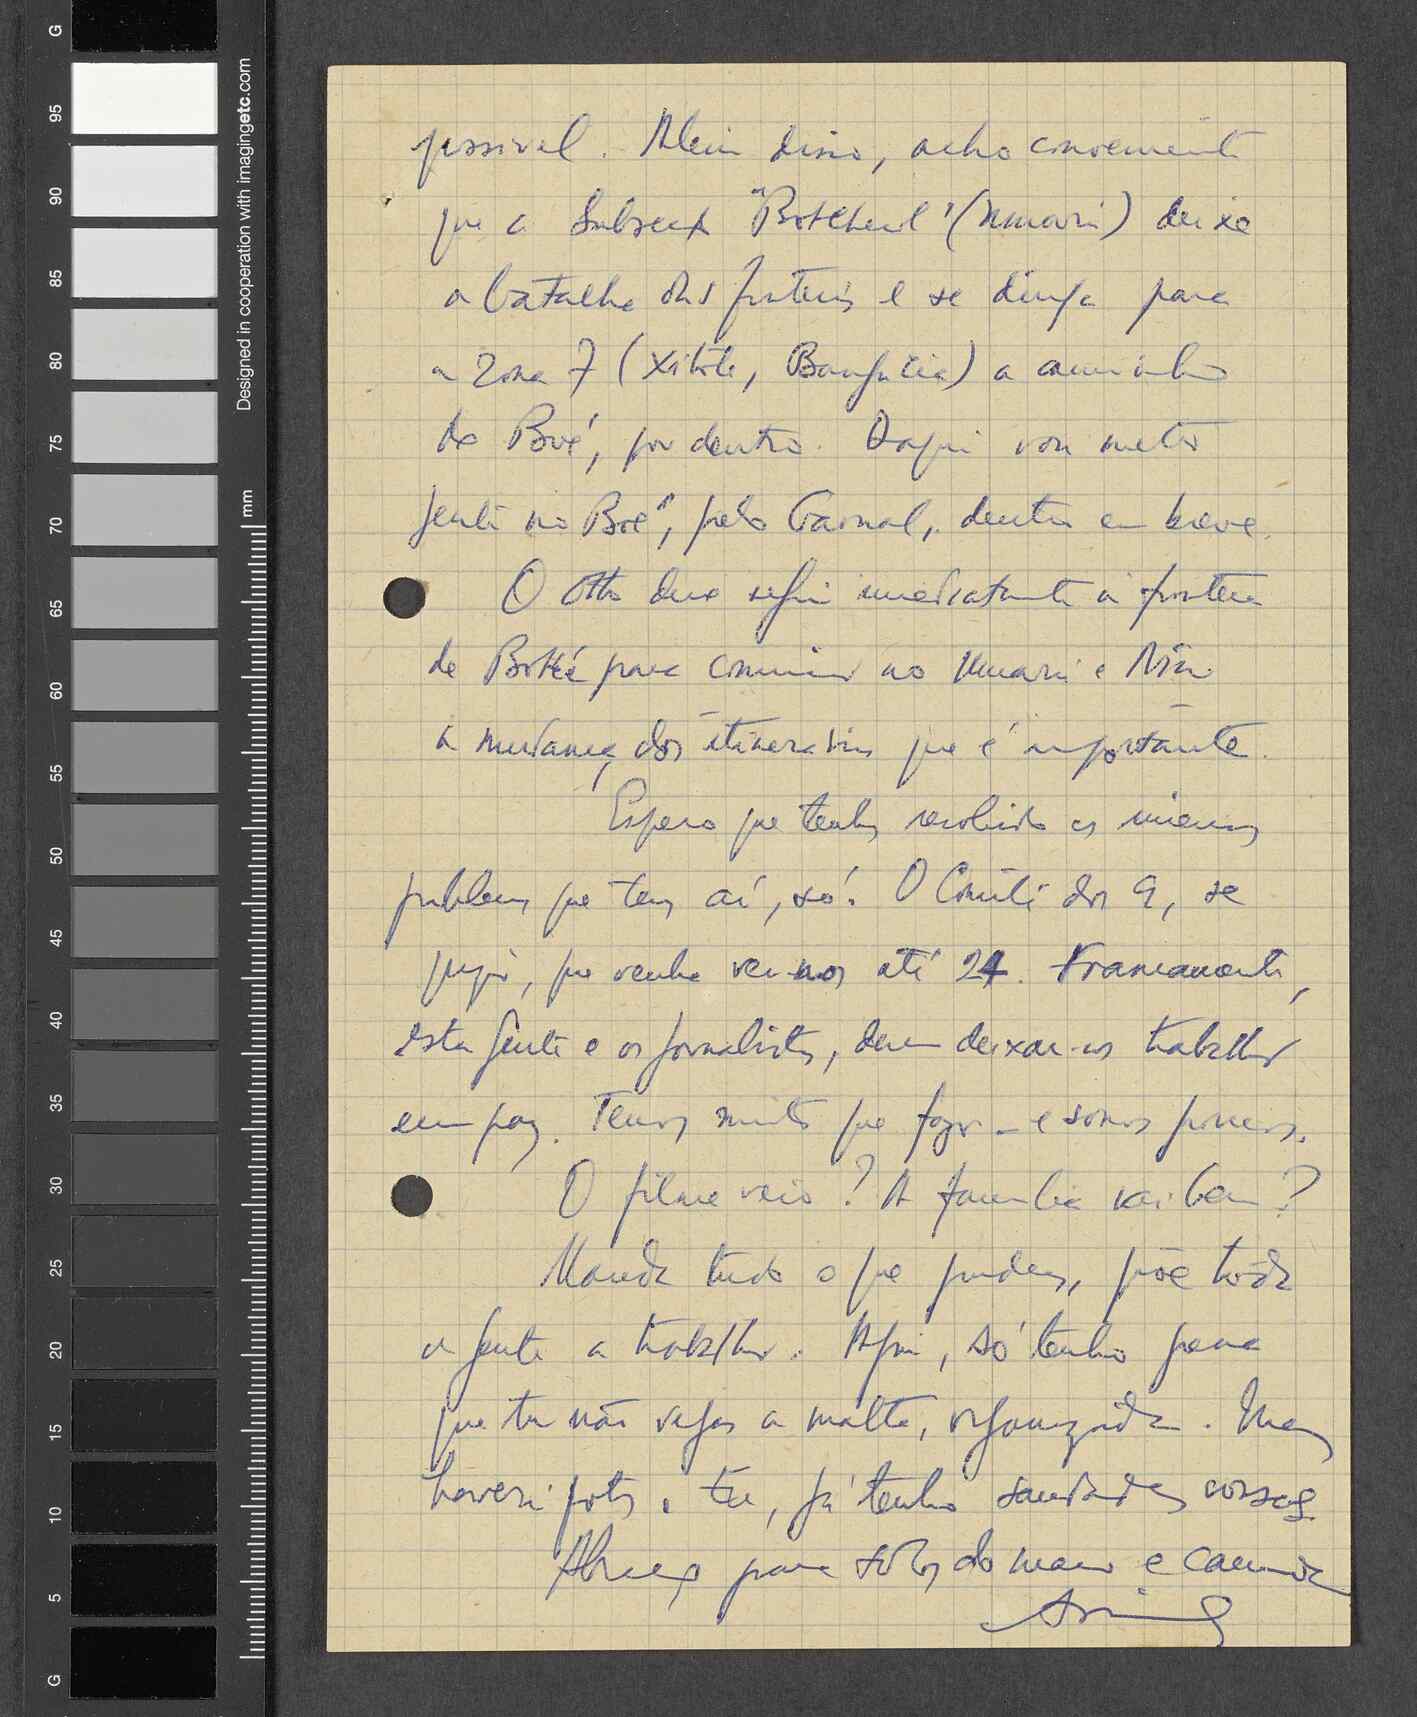 possível. Além disso, acho conveniente
que a Subsecç "Botchecul" (Umarú) deixe
a batalha das fronteiras e se dirija para
a Zona 7 (Xitole, Banfucia) a caminho
do Boé, por dentro. Daqui vou meter
gente no Boé, pelo Gaoual, dentro em breve.
O Otto deve seguir imediatamente à fronteira
de Bokké para comunicar ao Umarú e Nino
a mudança dos itinerários que é importante.
Espero que tenhas resolvido os inúmeros
problemas que tens aí, só! O Comité dos 9, se
que venha ver-nos até 24. Francamente,
esta gente e os jornalistas, devem deixar-nos trabalhar
em paz. Temos muito que fazer — e somos poucos.
O filme veio? A família vai bem?
Manda tudo o que puderes, põe tôda
a gente a trabalhar. Aqui, só tenho pena
que tu não vejas a malta, organizada. Mas
haverá fotos. Eu, já tenho saudades vossas.
Abraço para todos do mano e camarada